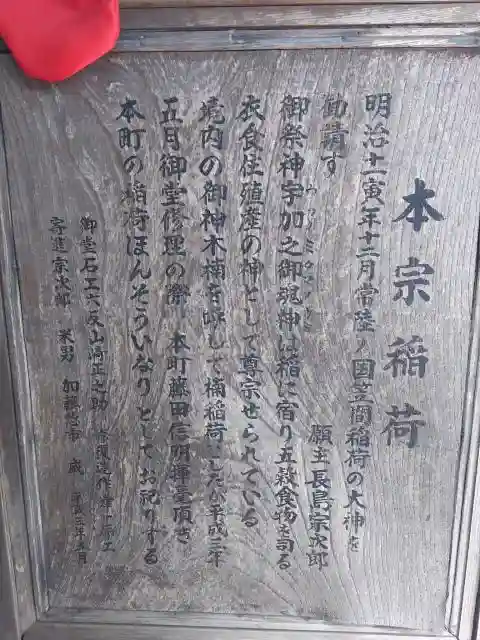 本宗稲荷
明治十一寅年十二月常陸ノ国笠間稲荷の大神を
勧請す 願主長島宗次郎
御祭神宇加之御魂神は稲に宿り五穀食物を司る
衣食住殖産の神として尊宗せられている
境内の御神木楠を呼して楠稲荷としたが平成三年
五月御堂修理の際 本町藤田信明揮毫頂き
本町の稲荷ほんそういなりとしてお祀りする
御堂石工六反山崎正之助
寄進宗次郎 栄男 加藤 平成三年五月